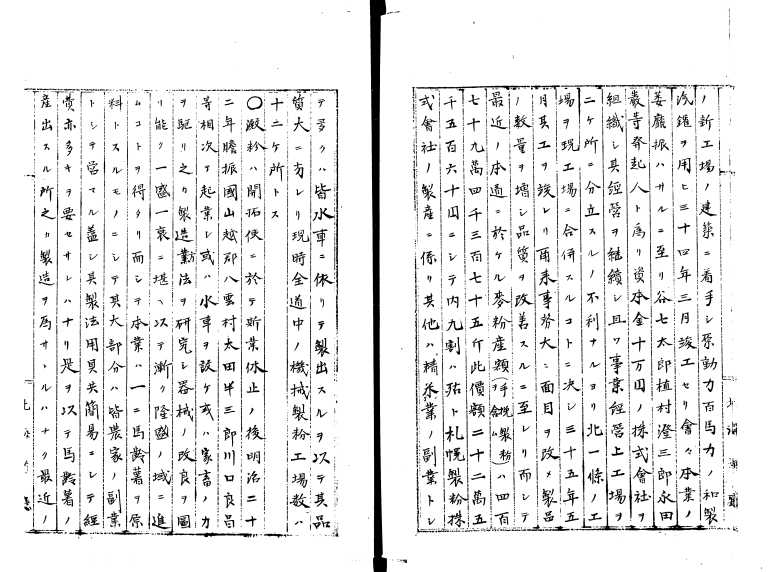 ノ新工場ノ建築ニ着手シ原動力百馬力ノ和製
汽鑵ヲ用ヒ三十四年三月竣工セリ會々本業ノ
萎靡振ハサルニ至リ谷七太郎植村澄三郎永田
巖等発起人ト為リ資本金十万円ノ株式會社ヲ
組織シ其経營ヲ継續シ且ツ事業経營上工場ヲ
二ケ所ニ分立スルノ不利ナルヨリ北一條ノ工
場ヲ現工場ニ合併スルコトニ決シ三十五年五
月其工ヲ竣レリ爾来事務大ニ面目ヲ改メ製品
ノ数量ヲ増シ品質ヲ改善スルニ至レリ而シテ
最近ノ本道ニ於ケル麥粉産額ハ四百
七十九萬四千三百七十五斤此價額二十二萬五
千五百六十円ニシテ内九割ハ殆ト札幌製粉株
式會社ノ製産ニ係リ其他ハ精米業ノ副業トシ
テ多クハ皆水車ニ依リテ製出スルヲ以テ其品
質大ニ劣レリ現時全道中ノ機械製粉工場数ハ
十二ケ所トス
〇澱粉ハ開拓使ニ於テ斯業休止ノ後明治二十
二年膽振國山越郡八雲村太田半三郎川口良昌
等相次テ起業シ或ハ水車ヲ設ケ或ハ家畜ノ力
ヲ駆リ之カ製造業方法ヲ研究シ器械ノ改良ヲ圖
リ能ク一盛一衰ニ堪ヘ以テ漸ク隆盛ノ域ニ進
ムコトヲ得タリ而シテ本業ハ一ニ馬齢薯ヲ原
料トスルモノニシテ其大部分ハ皆農家ノ副業
トシテ営マル蓋シ其製法用具共簡易ニシテ経
費亦多キヲ要セサレハナリ是ヲ以テ馬齢薯ノ
産出スル所之カ製造ヲ為サヽルハナク最近ノ